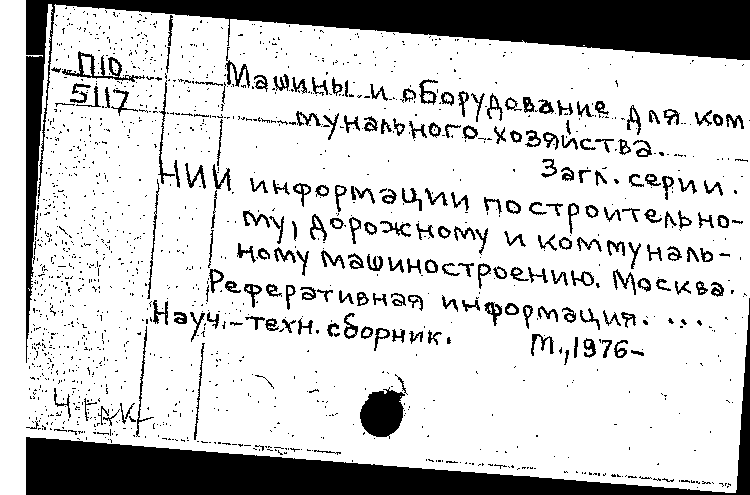 П10
5117
Машины и оборудование для ком
мунального хозяйства.
Загл. серии.
НИИ информации по строительно-
му, дорожному и коммуналь-
ному машиностроению. Москва.
Реферативная информация. ...
Науч.-техн. сборник. М., 1976-